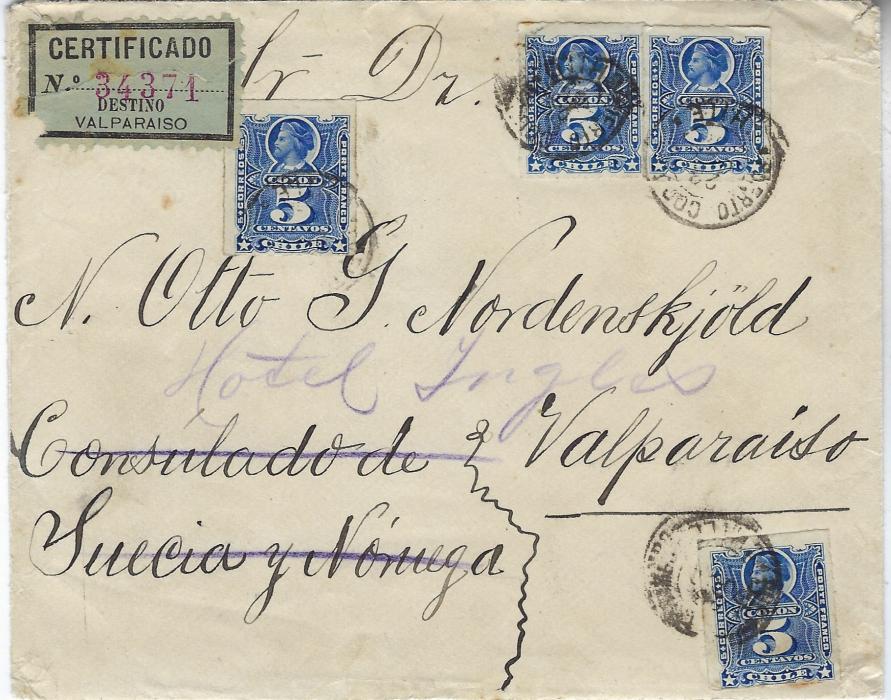 CERTIFICADO
N.º 34371
DESTINO
VALPARAISO
Sr Dr.
CORREOS
COLON
PORTE FRANCO
5
CENTAVOS
CHILE
CORREOS
COLON
PORTE FRANCO
5
CENTAVOS
CHILE
PUERTO
CORREOS
COLON
PORTE FRANCO
5
CENTAVOS
CHILE
N. Otto G. Nordenskjöld
Hotel Ingles
Consúlado de
Valparaiso
Suecia y Nóruega
CORREOS
COLON
PORTE FRANCO
5
CENTAVOS
CHILE